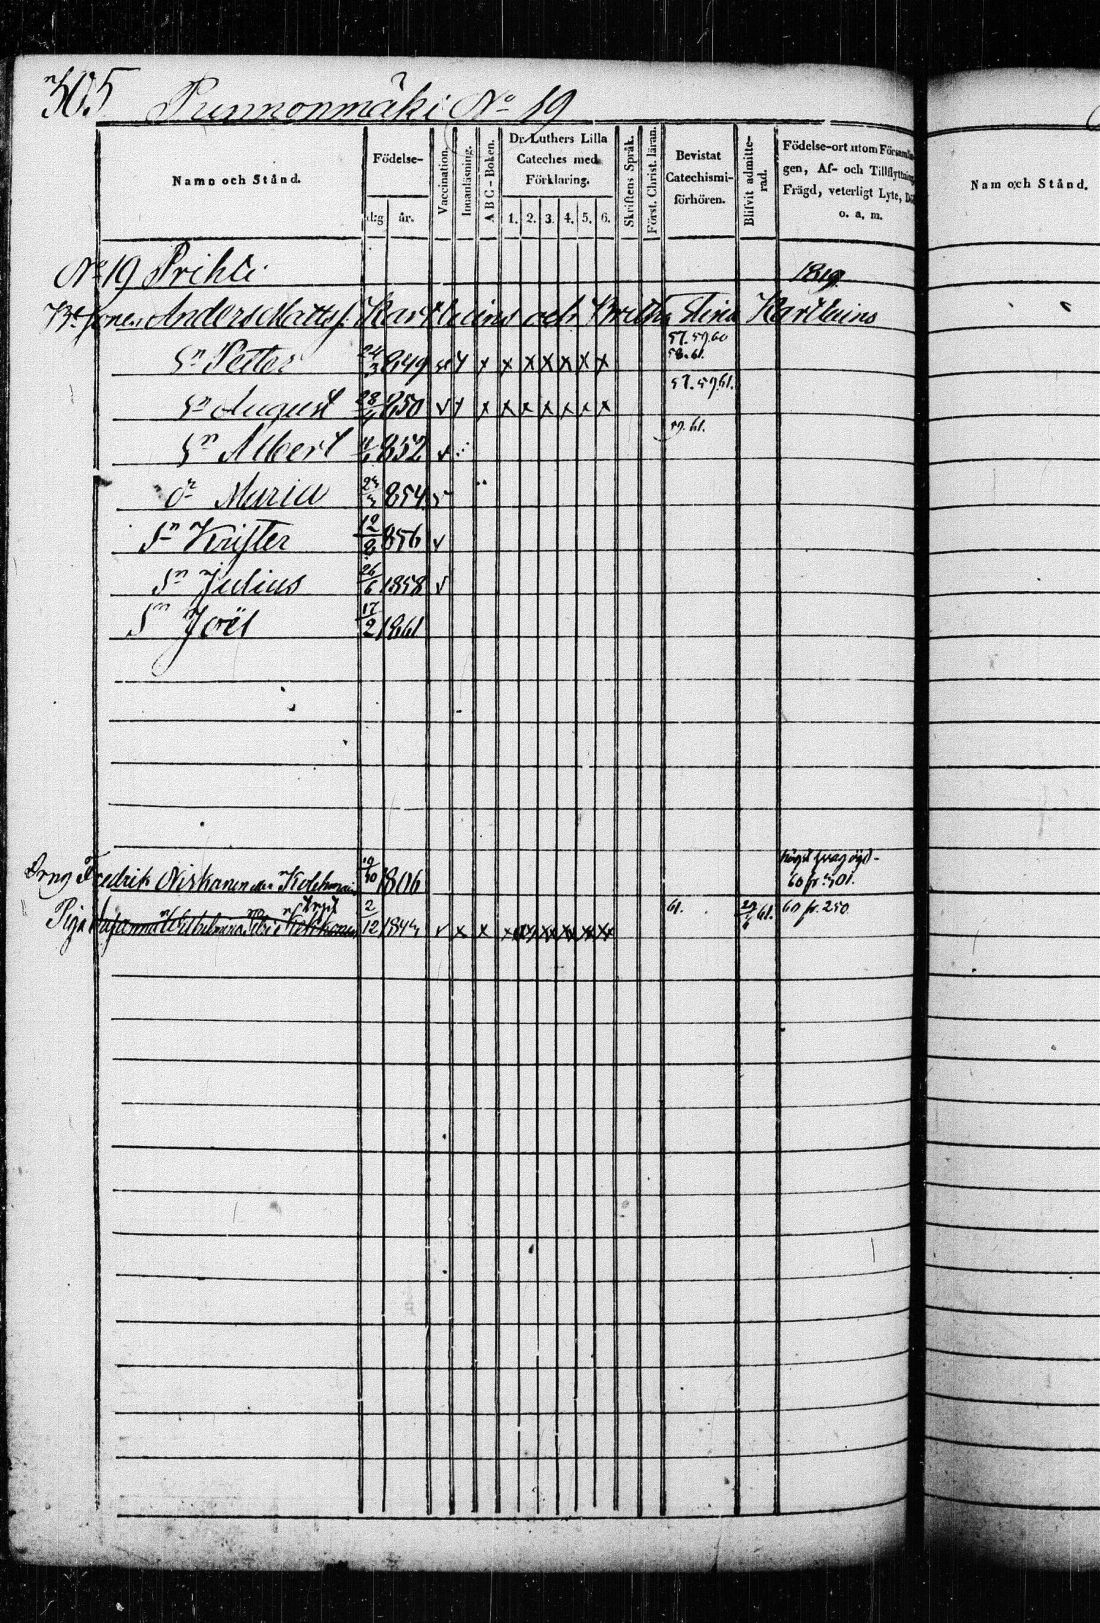 305 Punnonmäki No 19
Namn och Stånd.
Födelse-
dag år.
Vaccination.
Innanläsning.
ABC-Boken.
Dr. Luthers Lilla
Cateches med
Förklaring.
1. 2. 3. 4. 5. 6.
Skriftens Språk.
Först. Christ. läran.
Bevistat
Catechismi-
förhören.
Blifvit admitte-
rad.
Födelse-ort utom Församlin
gen, Af- och Tillflyttning,
Frägd, veterligt Lyte, Dö
o. a. m.
Nam och Stånd.
No 19 Prihti 1819
Anders Mattss. Karthuins och Britha Stina Karthuins
57. 59. 60
Sn Petter 24/3 1849 v x x x x x x x x 58. 61.
57. 59. 61.
Sn August 28/ 1850 v x x x x x x x x
59. 61.
Sn Albert 1852 v
dr Maria 1854 v
Sn Krister 12/8 1856 v
Sn Julius 26/6 1858 v
Sn Joël 17/2 1861
Dräng Fredrik Niskanen Kolehmain 19/10 1806
60 fr. 501.
Piga Wilhelmina Kekkonen 2/12 1843 v x x x x x x x x 61. 29/6 61. 60 fr. 250